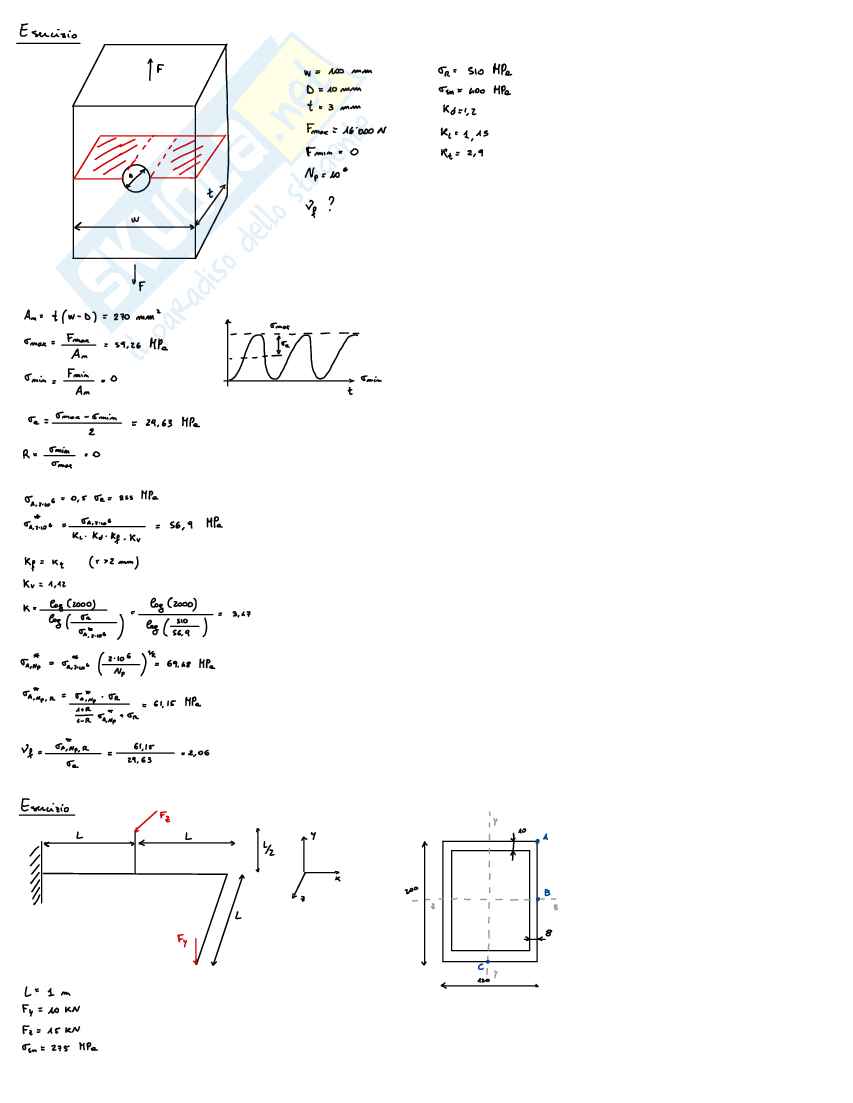 Esercizio
F
w = 100 mm
D = 10 mm
t = 3 mm
Fmax = 16'000 N
Fmin = 0
Np = 10⁶
νf ?
σR = 510 MPa
σsn = 400 MPa
Kd = 1,2
KL = 1,15
Kt = 2,9
D
t
w
F
SKUOLA.net
il paradiso dello studente
Am = t (w-D) = 270 mm²
σmax = Fmax / Am = 59,26 MPa
σmin = Fmin / Am = 0
σmax
σa
σmin
t
σa = (σmax - σmin) / 2 = 29,63 MPa
R = σmin / σmax = 0
σA,2·10⁶ = 0,5 σR = 255 MPa
σ*A,2·10⁶ = σA,2·10⁶ / (KL · Kd · Kf · Kv) = 56,9 MPa
Kf = Kt (r > 2 mm)
Kv = 1,12
K = log(2000) / log(σR / σ*A,2·10⁶) = log(2000) / log(510 / 56,9) = 3,47
σ*A,Np = σ*A,2·10⁶ (2·10⁶ / Np)^1/K = 69,48 MPa
σ*A,Np,R = σ*A,Np · σR / ((1+R)/(1-R) σ*A,Np + σR) = 61,15 MPa
νf = σ*A,Np,R / σa = 61,15 / 29,63 = 2,06
Esercizio
Fz
L
L
L/2
y
x
z
L
Fy
y
10
A
200
z
B
z
8
C
y
120
L = 1 m
Fy = 10 KN
Fz = 15 KN
σsn = 275 MPa